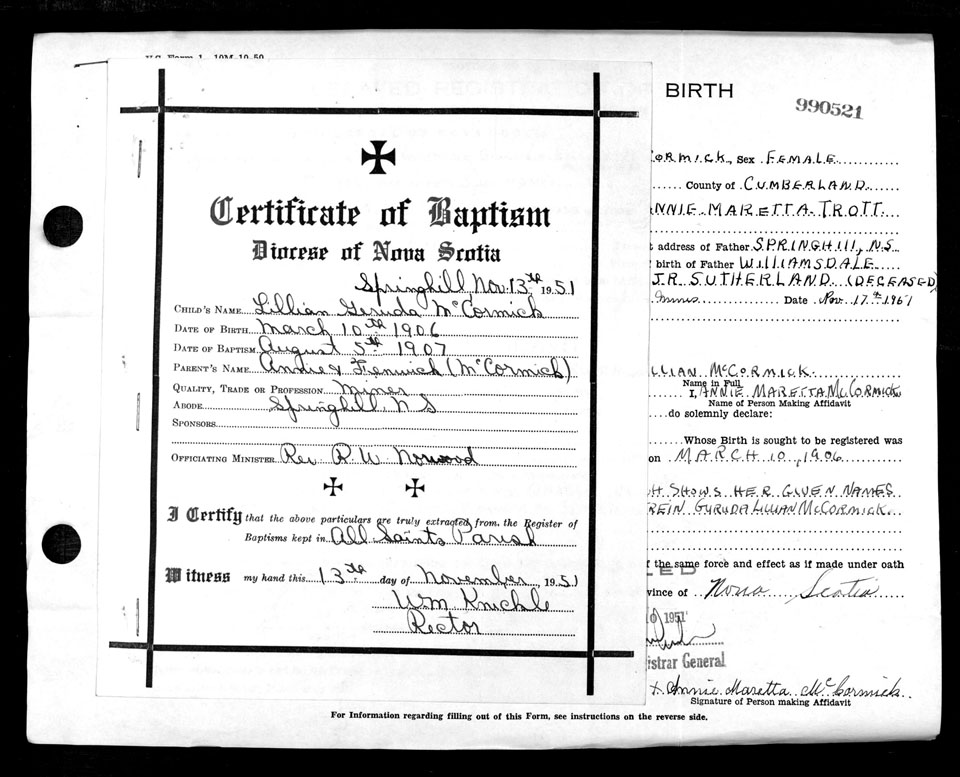 U.S. Form 1—10M-10-50
Certificate of Baptism
Diocese of Nova Scotia
Springhill Nov. 13th 1951
CHILD'S NAME Lillian Geruda McCormick
DATE OF BIRTH March 10th 1906
DATE OF BAPTISM August 5th 1907
PARENT'S NAME Annie & Fenwick (McCormick)
QUALITY, TRADE OR PROFESSION Miner
ABODE Springhill, N S
SPONSORS
OFFICIATING MINISTER Rev R. W. Norwood
I Certify that the above particulars are truly extracted from the Register of
Baptisms kept in All Saints Parish
Witness my hand this 13th day of November 1951
Wm Knickle
Rector
BIRTH
990521
CORMICK, Sex FEMALE
County of CUMBERLAND
NNIE MARETTA TROTT
t address of Father SPRINGHIll, N.S
birth of Father WILLIAMSDALE
J.R. SUTHERLAND (DECEASED)
Date Nov. 17th 1951
LLIAN McCORMICK
Name in Full
I, ANNIE MARETTA McCORMICK
Name of Person Making Affidavit
do solemnly declare:
Whose Birth is sought to be registered was
on MARCH 10, 1906
H SHOWS HER GIVEN NAMES
REIN GURUDA LILLIAN McCORMICK
f the same force and effect as if made under oath
LED
vince of Nova Scotia
1951
istrar General
x Annie Maretta McCormick
Signature of Person making Affidavit
For Information regarding filling out of this Form, see instructions on the reverse side.